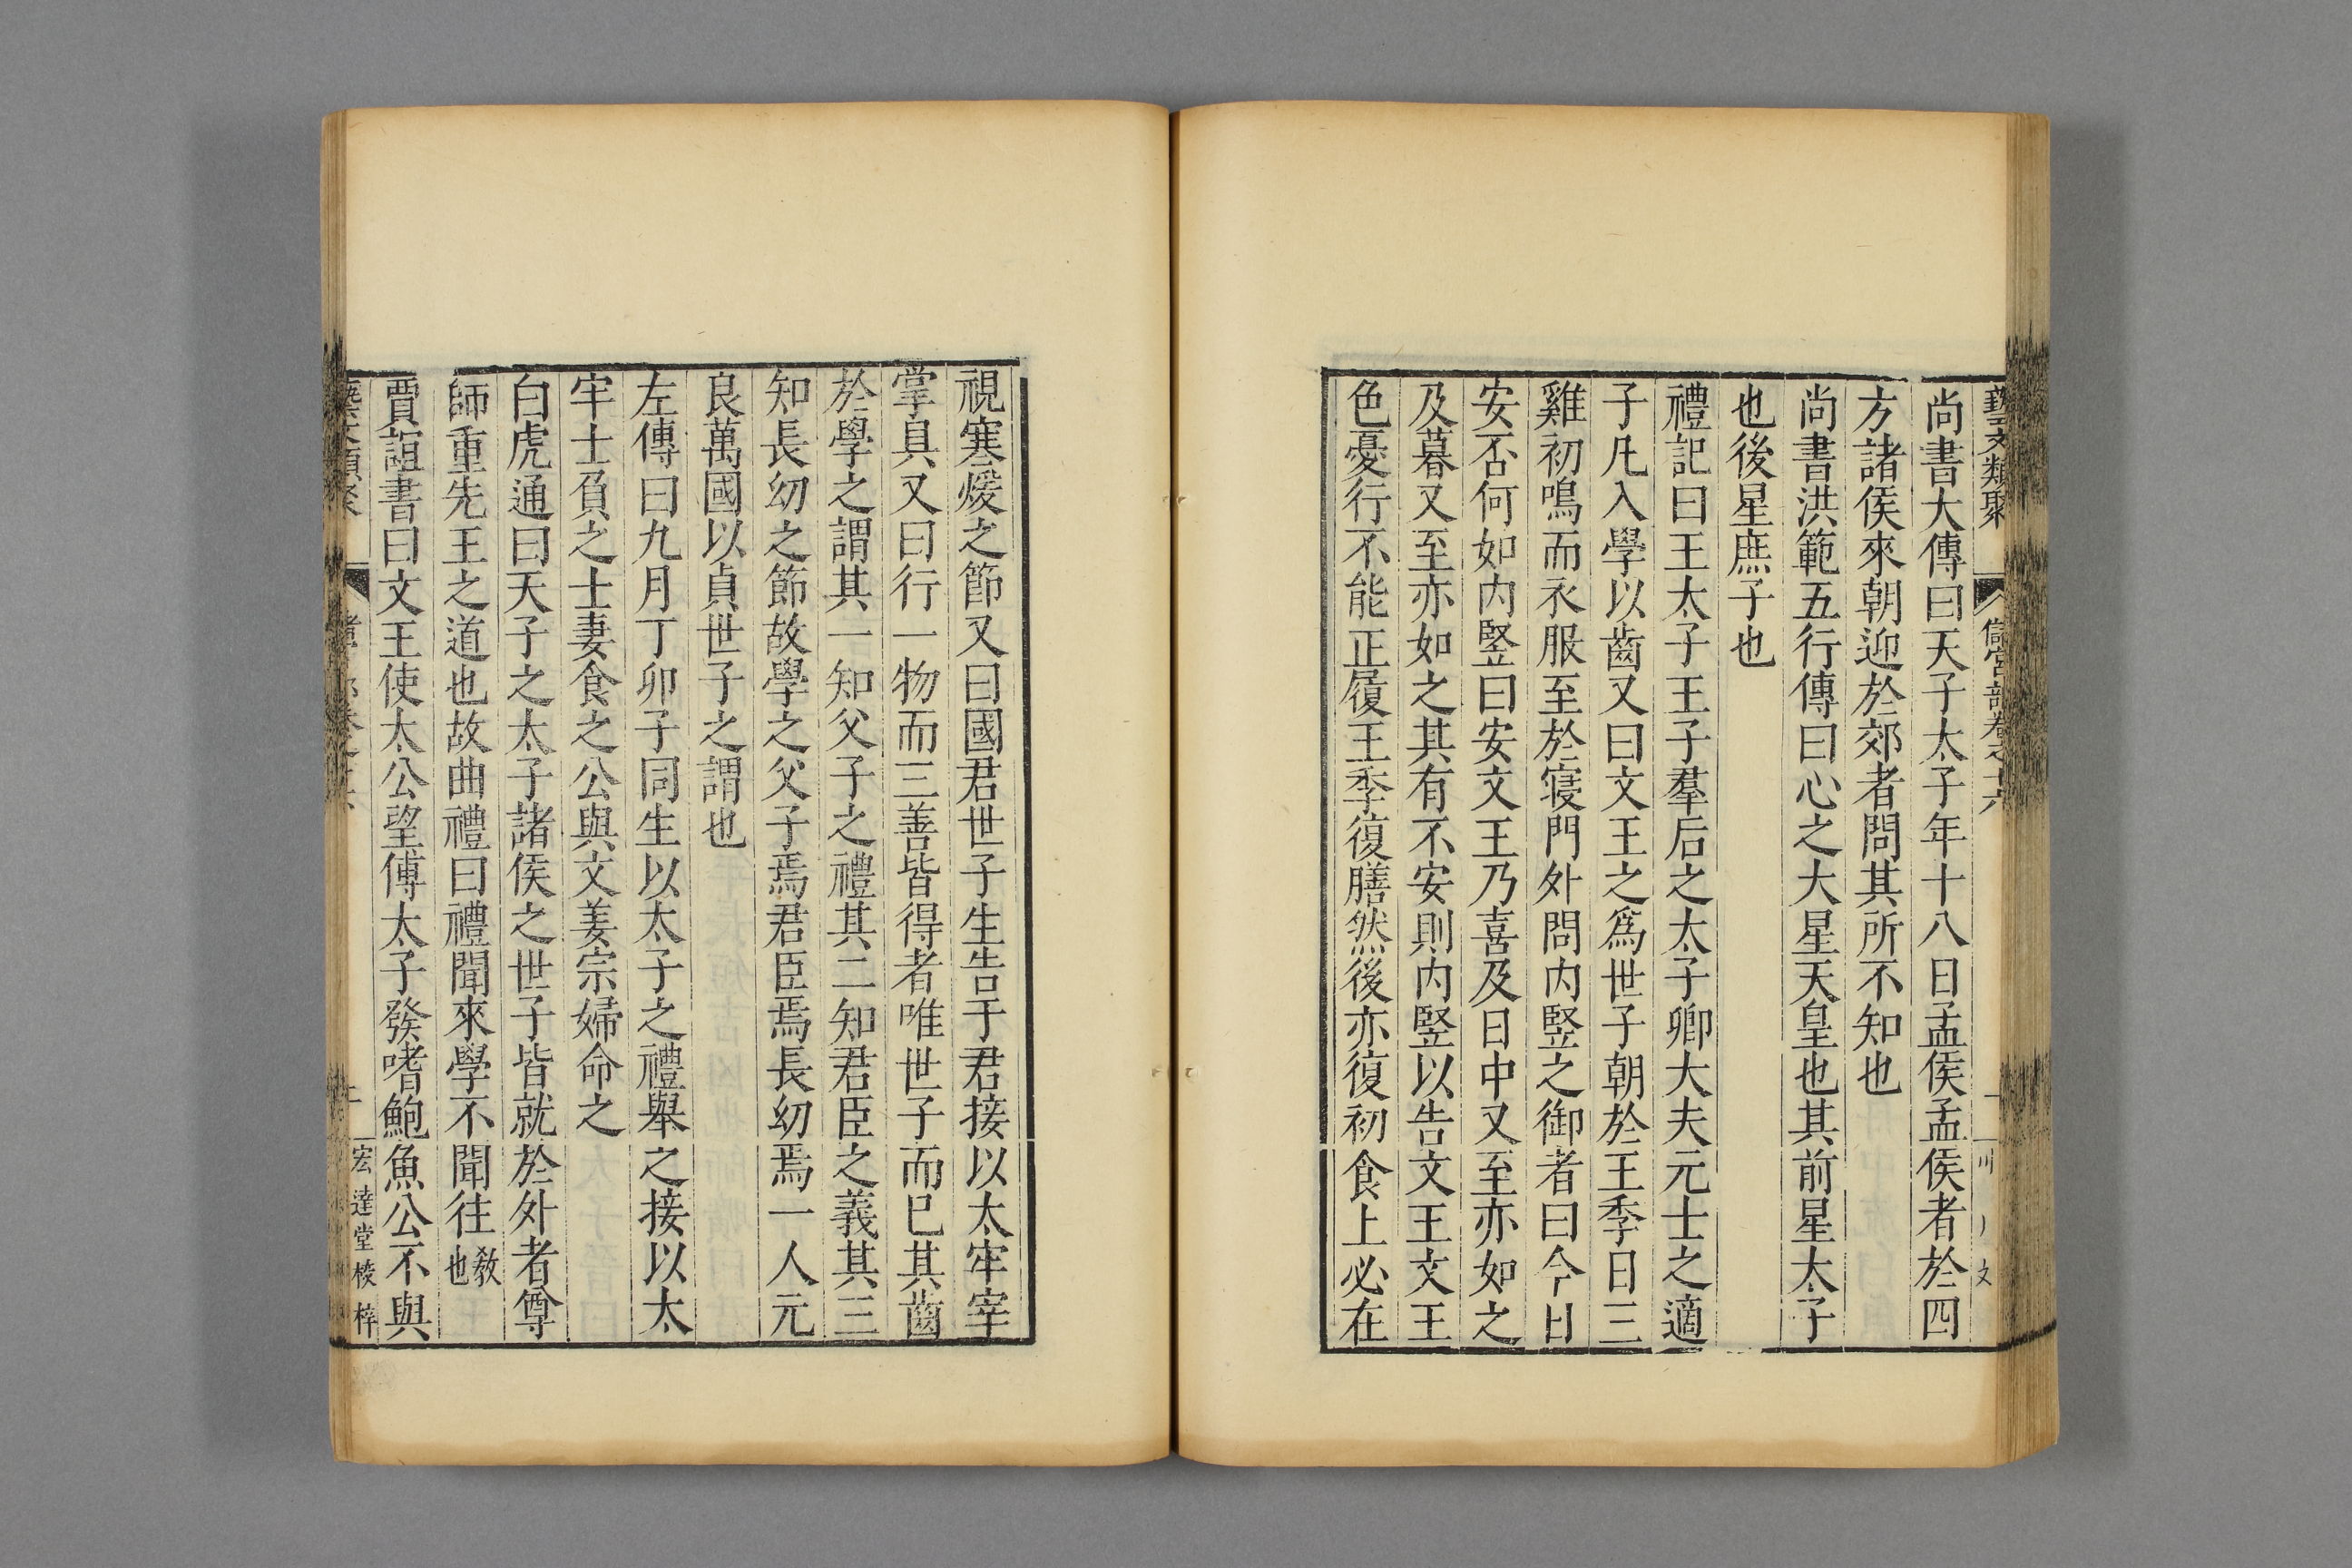 藝文類聚 儲宮部卷之十六
尚書大傳曰天子太子年十八日孟侯孟侯者於四
方諸侯來朝迎於郊者問其所不知也
尚書洪範五行傳曰心之大星天皇也其前星太子
也後星庶子也
禮記曰王太子王子羣后之太子卿大夫元士之適
子凡入學以齒又曰文王之爲世子朝於王季日三
雞初鳴而衣服至於寢門外問內竪之御者曰今日
安否何如內竪曰安文王乃喜及日中又至亦如之
及暮又至亦如之其有不安則內竪以告文王文王
色憂行不能正履王季復膳然後亦復初食上必在
視寒煖之節又曰國君世子生告于君接以太牢宰
掌具又曰行一物而三善皆得者唯世子而已其齒
於學之謂其一知父子之禮其二知君臣之義其三
知長幼之節故學之父子焉君臣焉長幼焉一人元
良萬國以貞世子之謂也
左傳曰九月丁卯子同生以太子之禮舉之接以太
牢士負之士妻食之公與文姜宗婦命之
白虎通曰天子之太子諸侯之世子皆就於外者尊
師重先王之道也故曲禮曰禮聞來學不聞往教也
賈誼書曰文王使太公望傅太子發嗜鮑魚公不與
宏達堂校梓